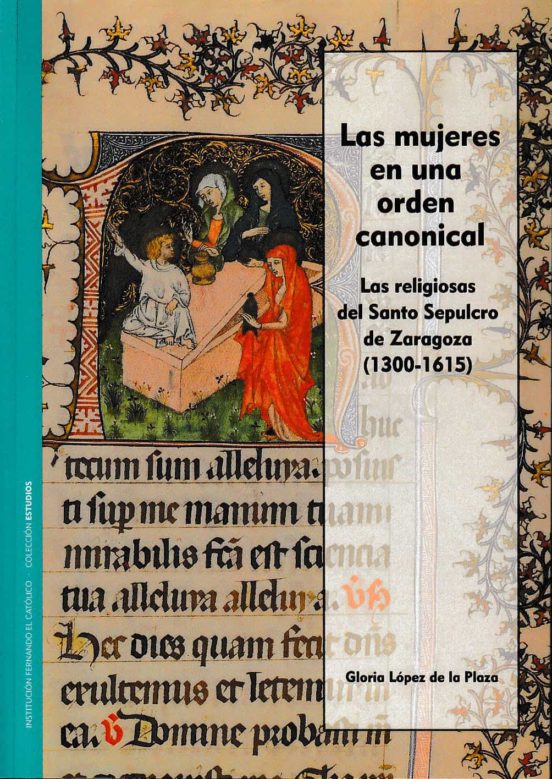 Las mujeres
en una
orden
canonical
Las religiosas
del Santo Sepulcro
de Zaragoza
(1300-1615)
tecum sum alleluya. posuis
ti sup me manum tuam
mirabilis fca est sciencia
tua allelura allelura.
Hec dies quam fecit dns
exultemus et letemur in
ea. Domine probasti m
Gloria López de la Plaza
INSTITUCIÓN FERNANDO EL CATÓLICO COLECCIÓN ESTUDIOS